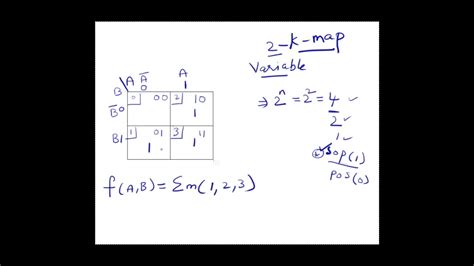 2-K-map
Variable
A
Ā A
B 0 1
B̄0 0 00 2 10
1
B1 1 01 3 11
1 1
⇒ 2ⁿ = 2² = 4 ✓
2 ✓
1 ✓
SOP(1)
POS(0)
f(A,B) = Σm(1,2,3)